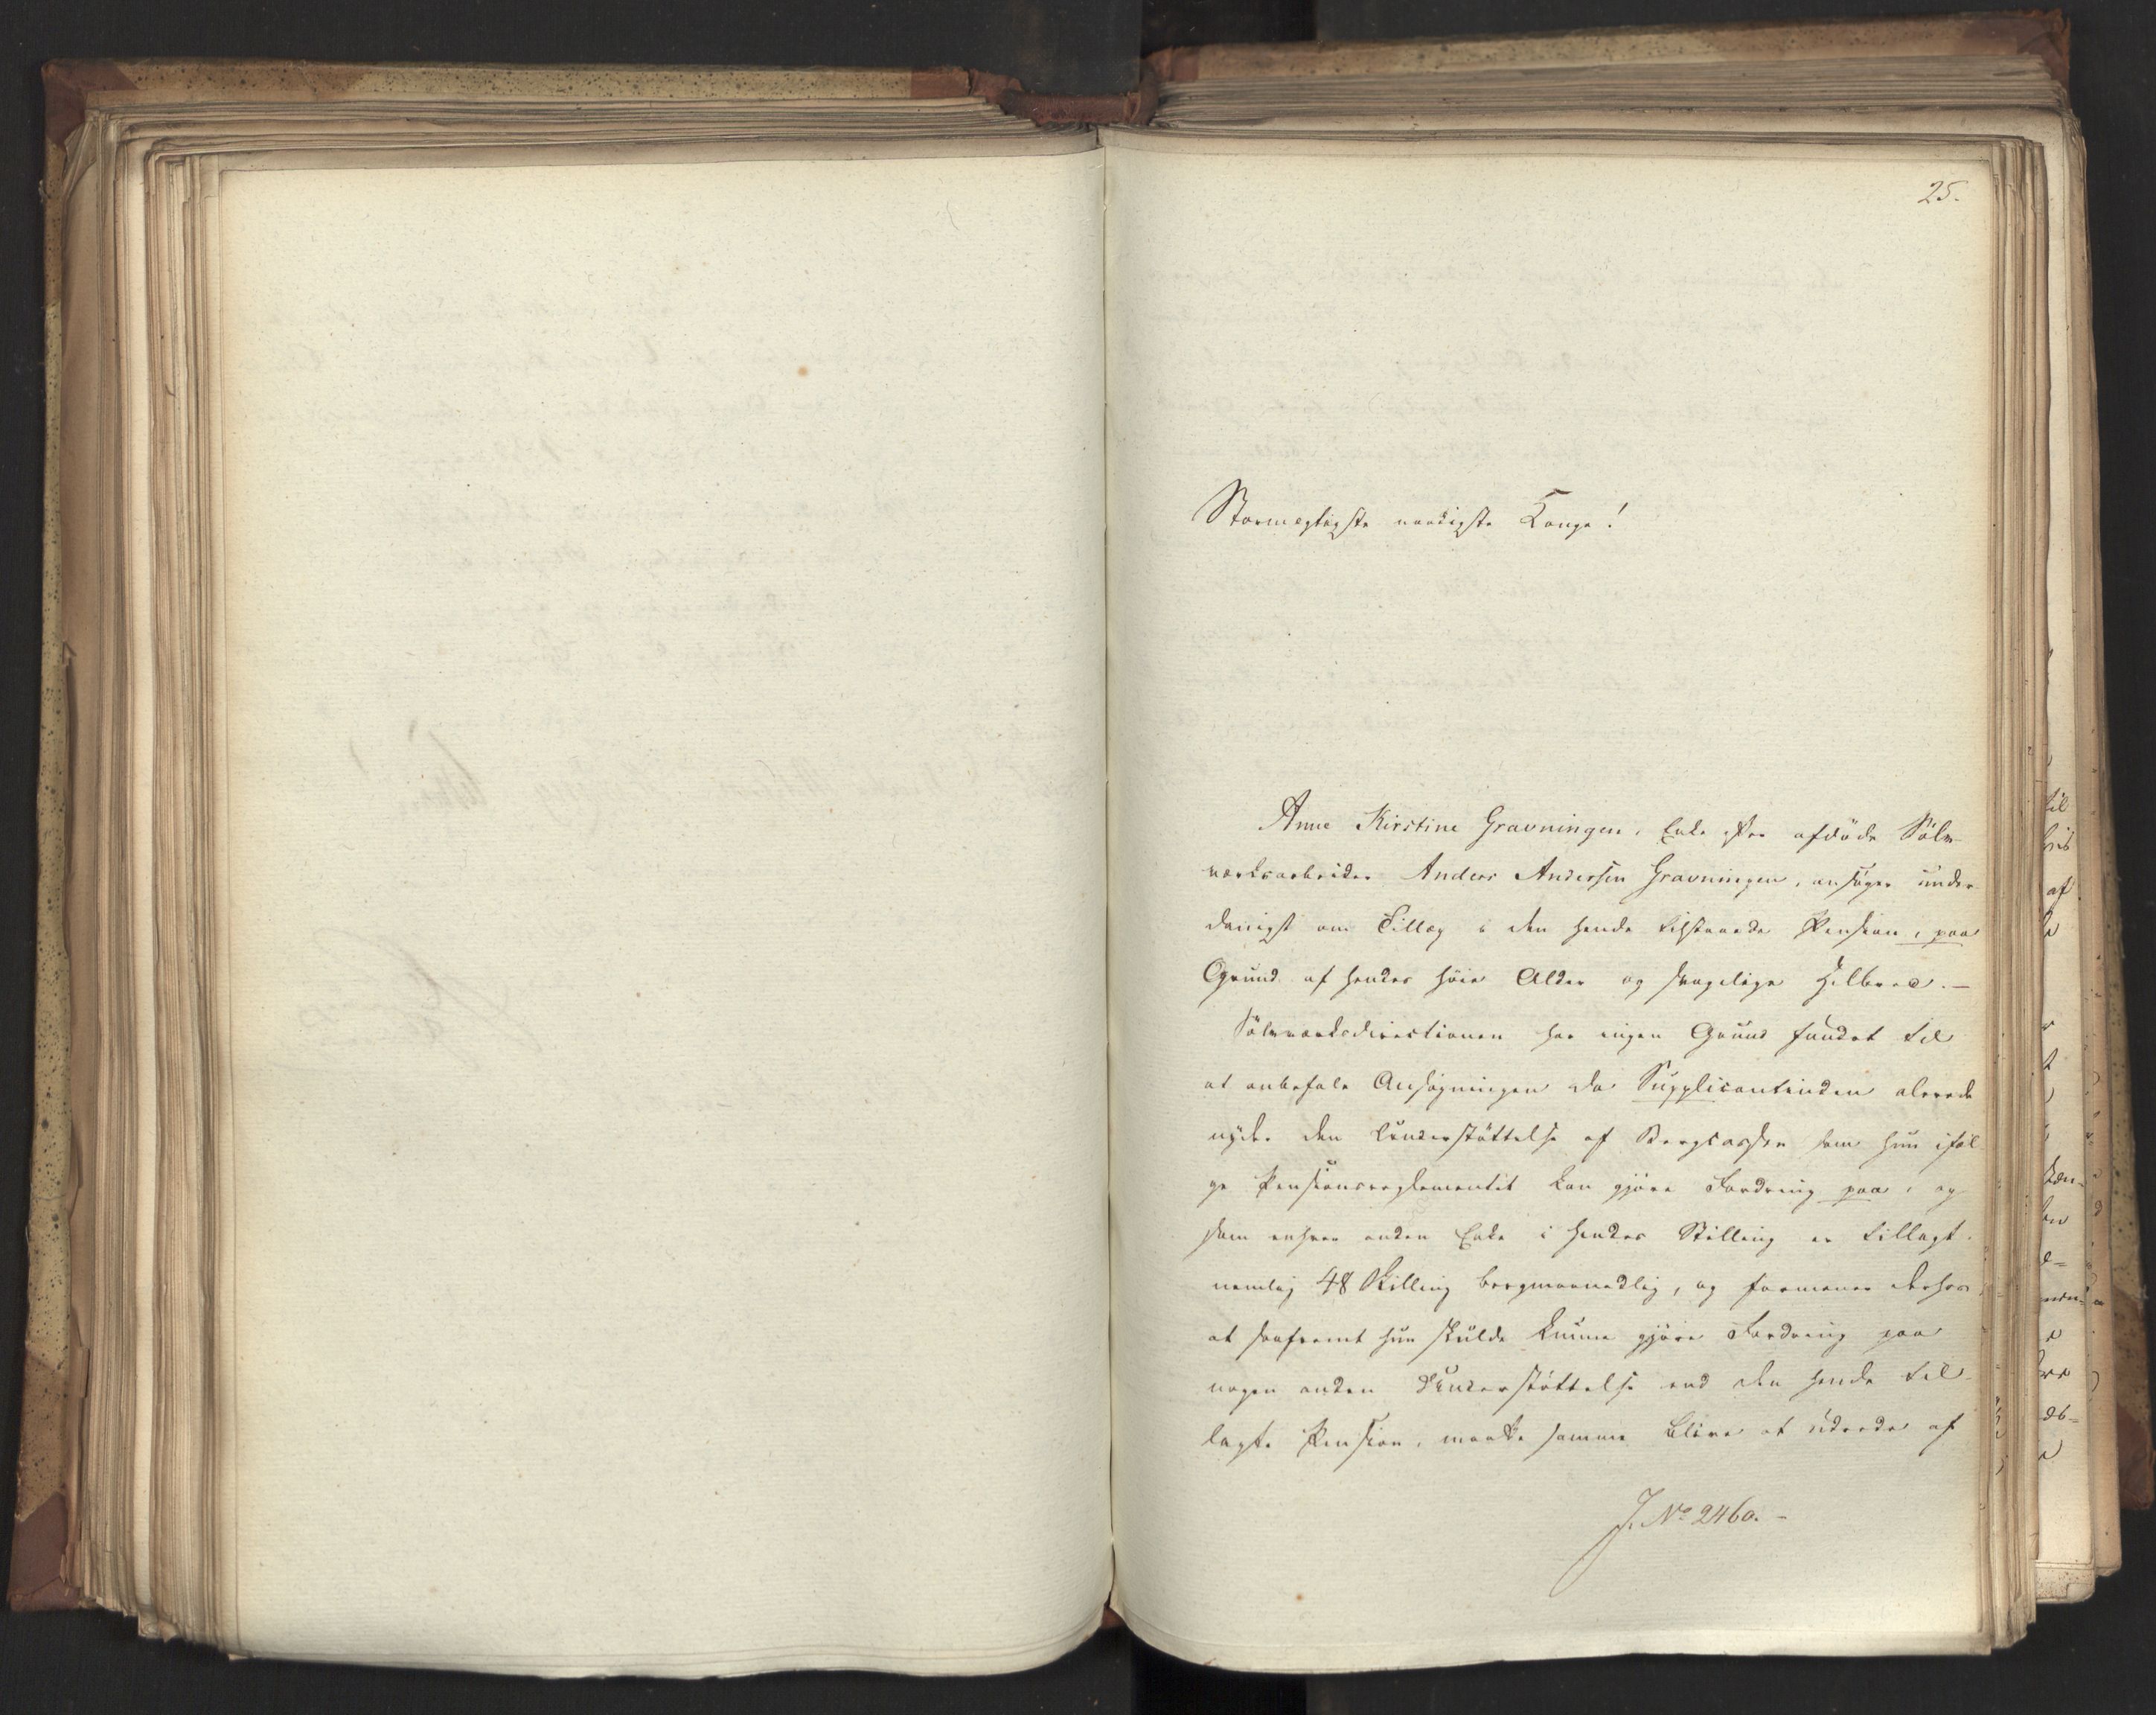 25.
Stormægtigste naadigste Konge!
Anne Kirstine Gravningen, Enke efter afdöde Sölv-
værksarbeider Anders Andersen Gravningen, ansöger under-
danigst om Tillæg i den hende tilstaaede Pension, paa
Grund af hendes höie Alder og svagelige Helbred.-
Sölvværksdirectionen har ingen Grund fundet til
at anbefale Ansögningen da Supplicantinden alerede
nyder den Understöttelse af Bergcassen som hun iföl
ge Pensionsreglementet kan gjöre Fordring paa, og
som enhver anden Enke i hendes Stilling er tillagt,
nemlig 48 Skilling bergmaanedlig, og formener derhos
at saafremt hun skulde kunne gjöre Fordring paa
nogen anden Understöttelse end den hende til-
lagte Pension, maatte samme blive at udrede af
J. No 2460.-